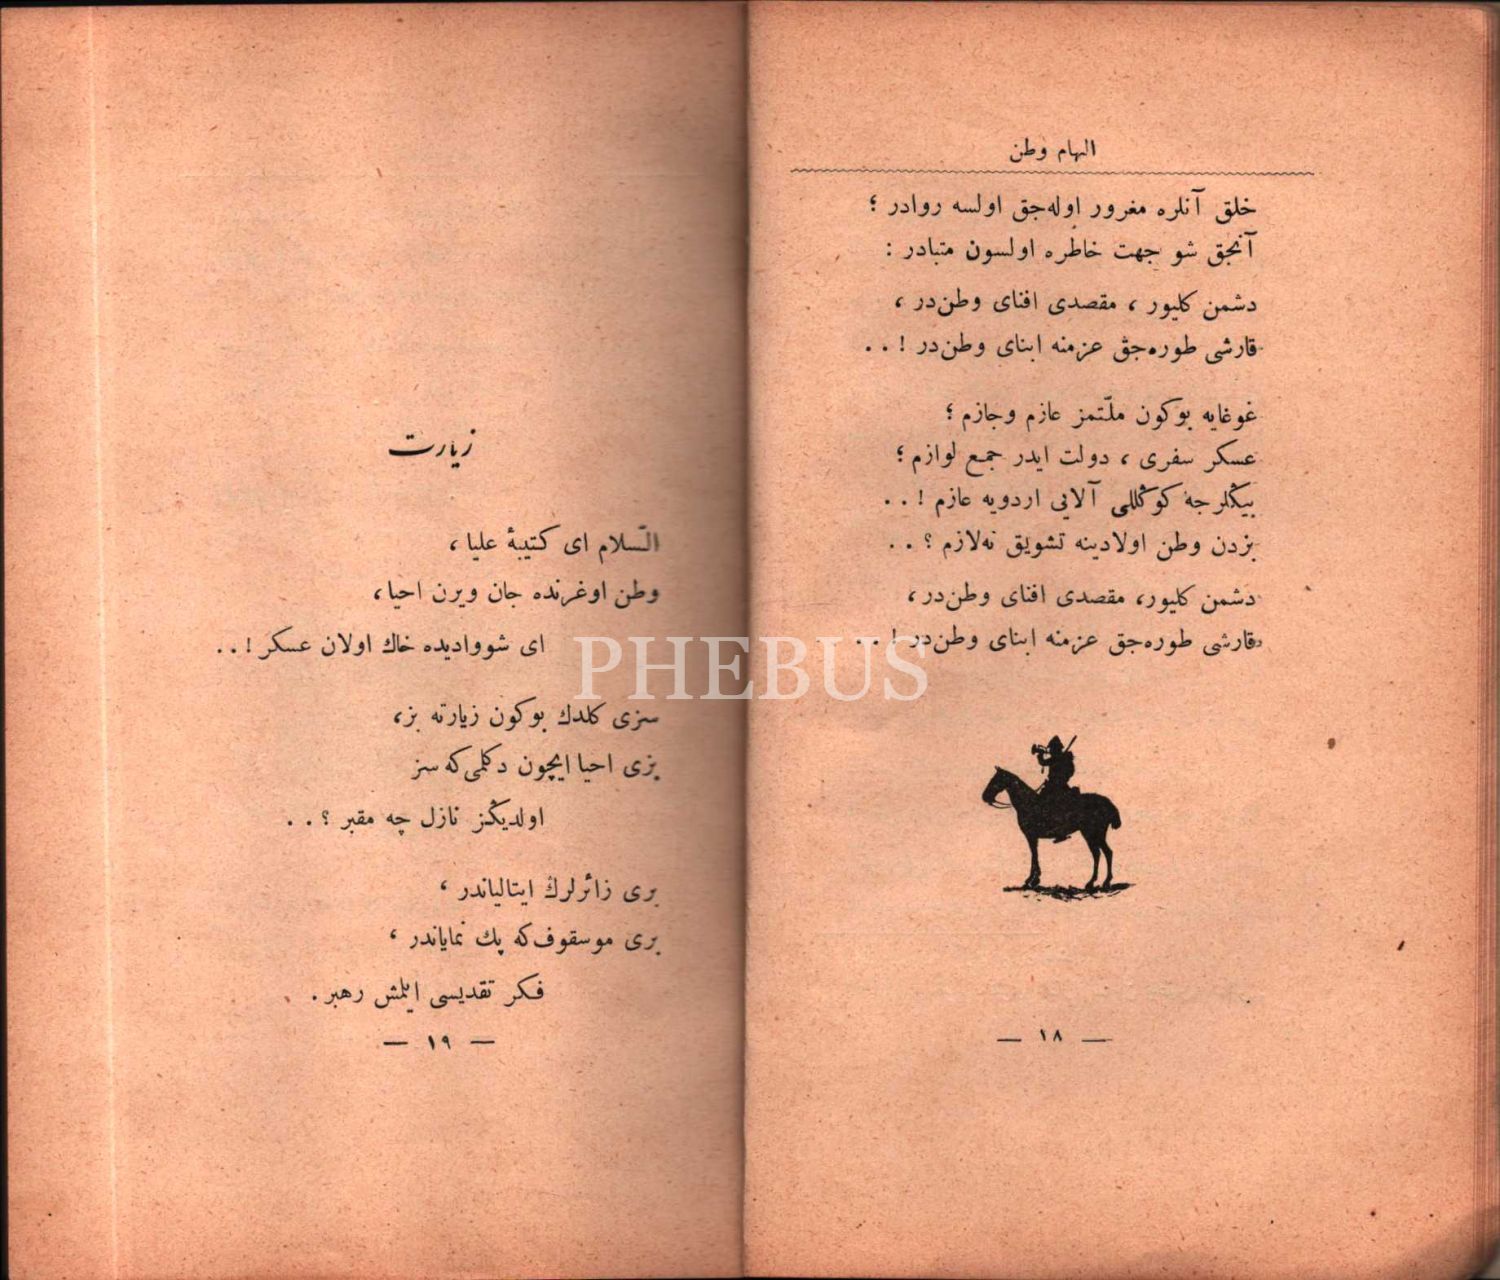 الهام وطن
خلق آنلره مغرور اوله‌جق اولسه روادر ؛
آنجق شو جهت خاطره اولسون متبادر :
دشمن كليور ، مقصدى افناى وطن‌در ،
قارشى طوره‌جق عزمنه ابناى وطن‌در ! . .
غوغايه بوكون ملّتمز عازم وجازم ؛
عسكر سفرى ، دولت ايدر جمع لوازم ؛
بيڭلرجه كوڭللى آلايى اردويه عازم ! . .
بزدن وطن اولادينه تشويق نه‌لازم ؟ . .
دشمن كليور، مقصدى افناى وطن‌در،
قارشى طوره‌جق عزمنه ابناى وطن‌در ! . .
— ١٨ —
زيارت
السّلام اى كتيبۀ عليا ،
وطن اوغرنده جان ويرن احيا ،
اى شووادیده خاك اولان عسكر ! . .
سزى كلدك بوكون زيارته بز،
بزى احيا ايچون دكلمى‌كه سز
اولديڭز نازل چه مقبر ؟ . .
برى زائرلرڭ ايتالياندر ،
برى موسقوف‌كه پك نماياندر ،
فكر تقديسى ايلمش رهبر .
— ١٩ —
PHEBUS